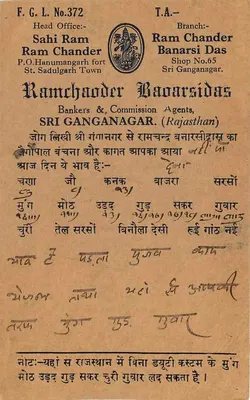 F. G. L. No.372
T.A.-
Head Office:-
Sahi Ram
Ram Chander
P.O.Hanumangarh fort
St. Sadulgarh Town
Branch:-
Ram Chander
Banarsi Das
Shop No.65
Sri Ganganagar.
Ramchaoder Baoarsidas
Bankers & Commission Agents,
SRI GANGANAGAR. (Rajasthan)
जोग लिखी श्री गंगानगर से रामचन्द्र बनारसीदास का
जैगोपाल बंचना और कागत आपका आया
आज दिन ये भाव है:-
चणा जौ कनक बाजरा सरसों
मुंग मोठ उड़द गुड़ सकर गुवार
चुरी तेल सरसों बिनौला देसी रूई गांठ नई
तरफ मुंग गुड़ गुवार
नोट:-यहां से राजस्थान में बिना डयूटी कस्टम के मुंग
मोठ उड़द गुड़ सकर चुरी गुवार लद सकता है ।